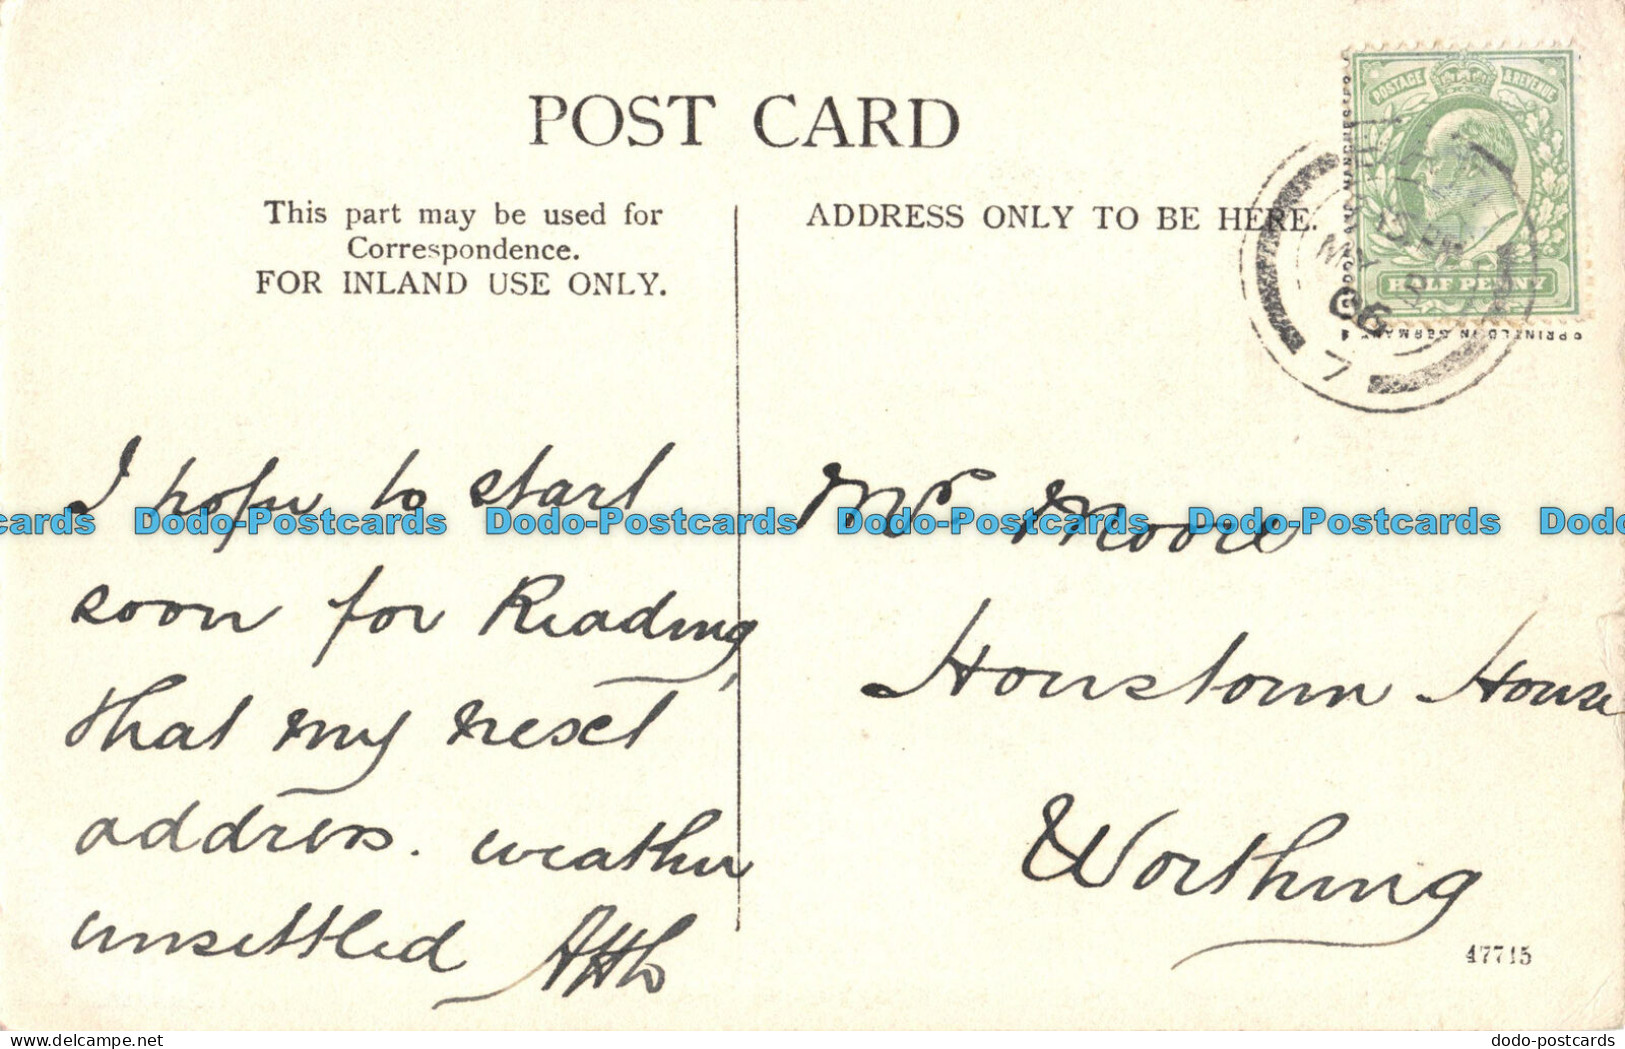 POST CARD
This part may be used for
Correspondence.
FOR INLAND USE ONLY.
ADDRESS ONLY TO BE HERE.
POSTAGE & REVENUE
HALF PENNY
12 PM
MY 9
06
7
PRINTED IN GERMANY
I hope to start
soon for Reading,
that my next
address. weather
unsettled
Mrs Moore
Houstoun House
Worthing
47715
Dodo-Postcards Dodo-Postcards Dodo-Postcards Dodo-Postcards
delcampe.net
dodo-postcards